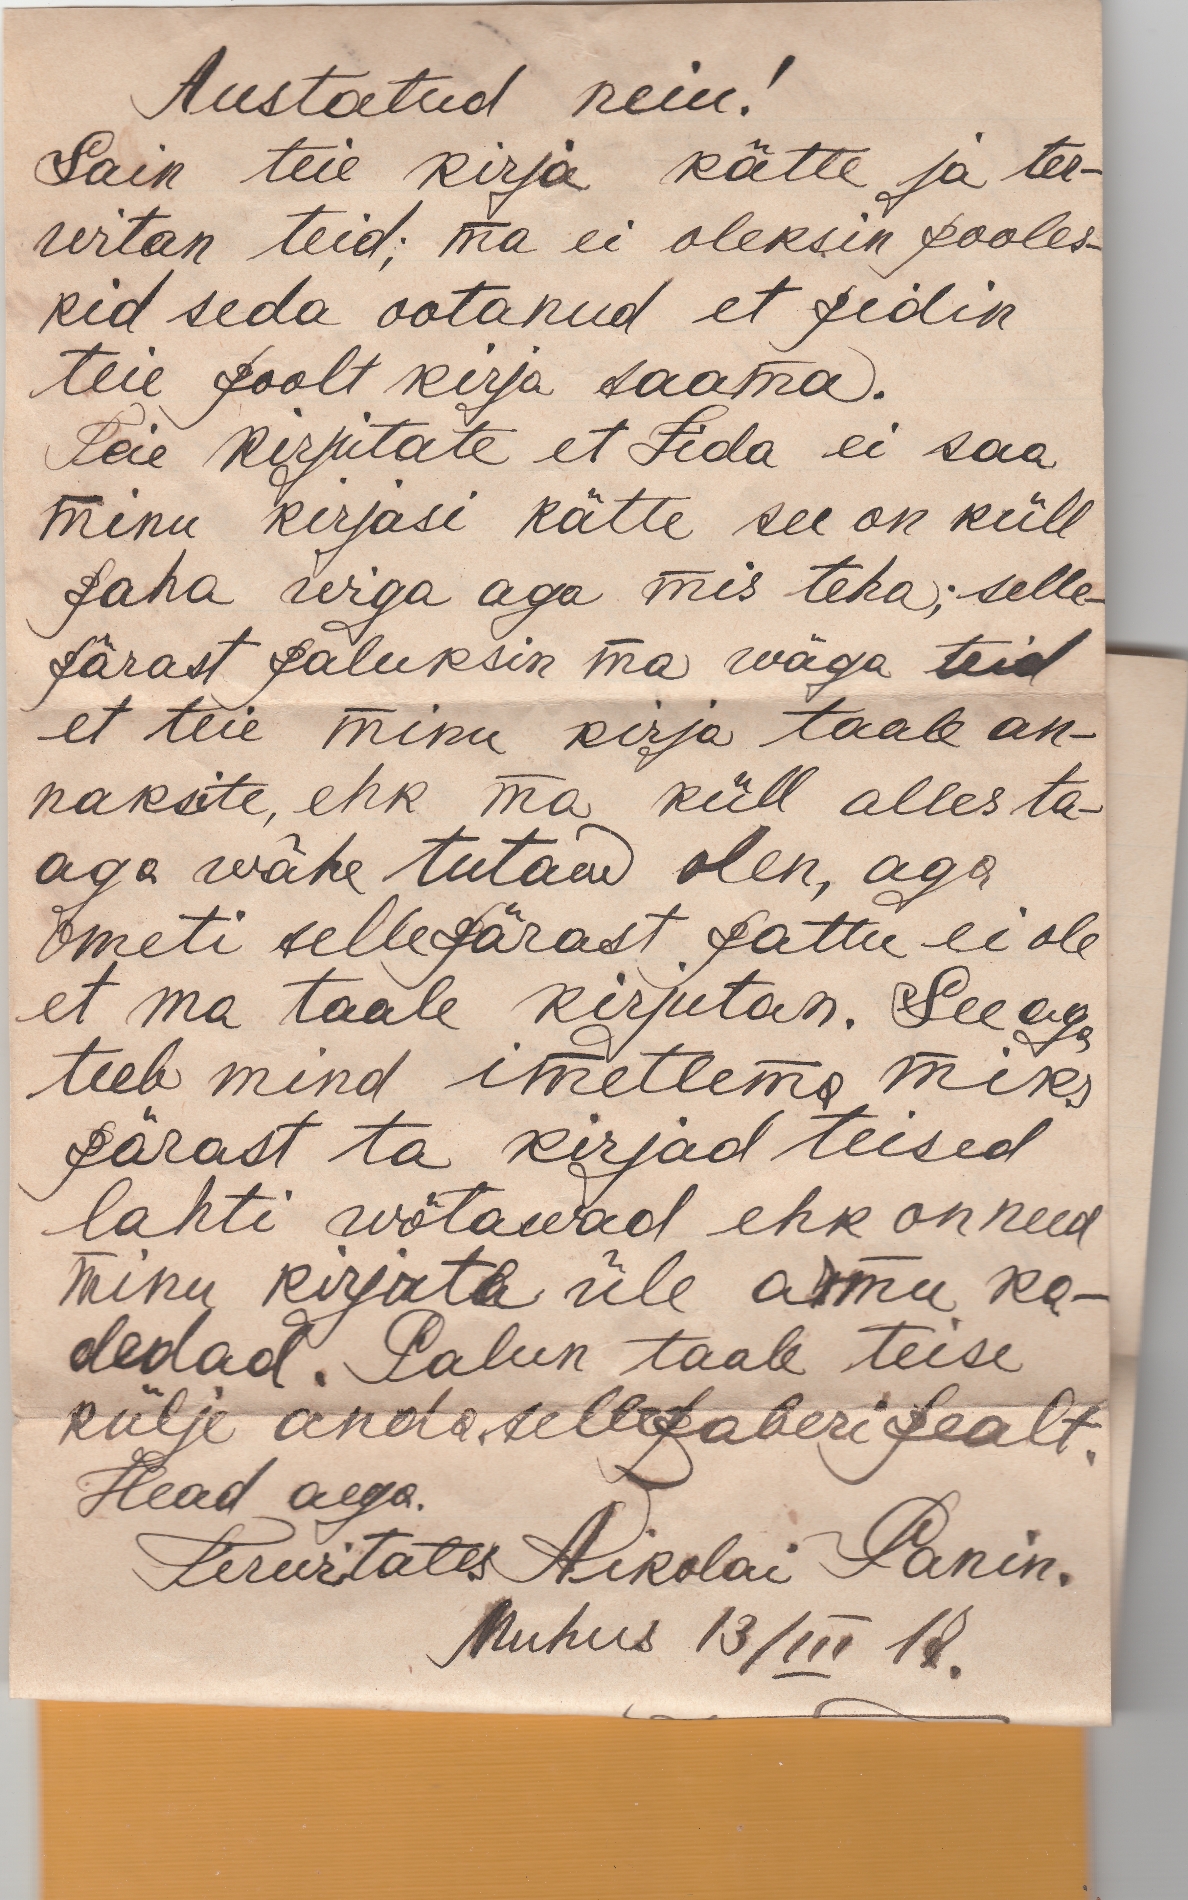 Austatud neiu!
Sain teie kirja kätte ja ter-
witan teid; ma ei oleksin pooles-
kid seda ootanud et pidin
teie poolt kirja saama.
Teie kirjutate et Fida ei saa
minu kirjasi kätte see on küll
paha wiga aga mis teha; selle-
pärast paluksin ma wäga teid
et teie minu kirja taale an-
naksite, ehk ma küll alles ta-
aga wähe tutaw olen, aga
ometi sellepärast pattu ei ole
et ma taale kirjutan. See aga
teeb mind imetlema miks
pärast ta kirjad teised
lahti wõtawad ehk on need
minu kirjute üle armu ka-
dedad. Palun taale teise
külje anda selle paberi pealt.
Head aega.
Terwitates Nikolai Panin.
Muhus 13/III 18.